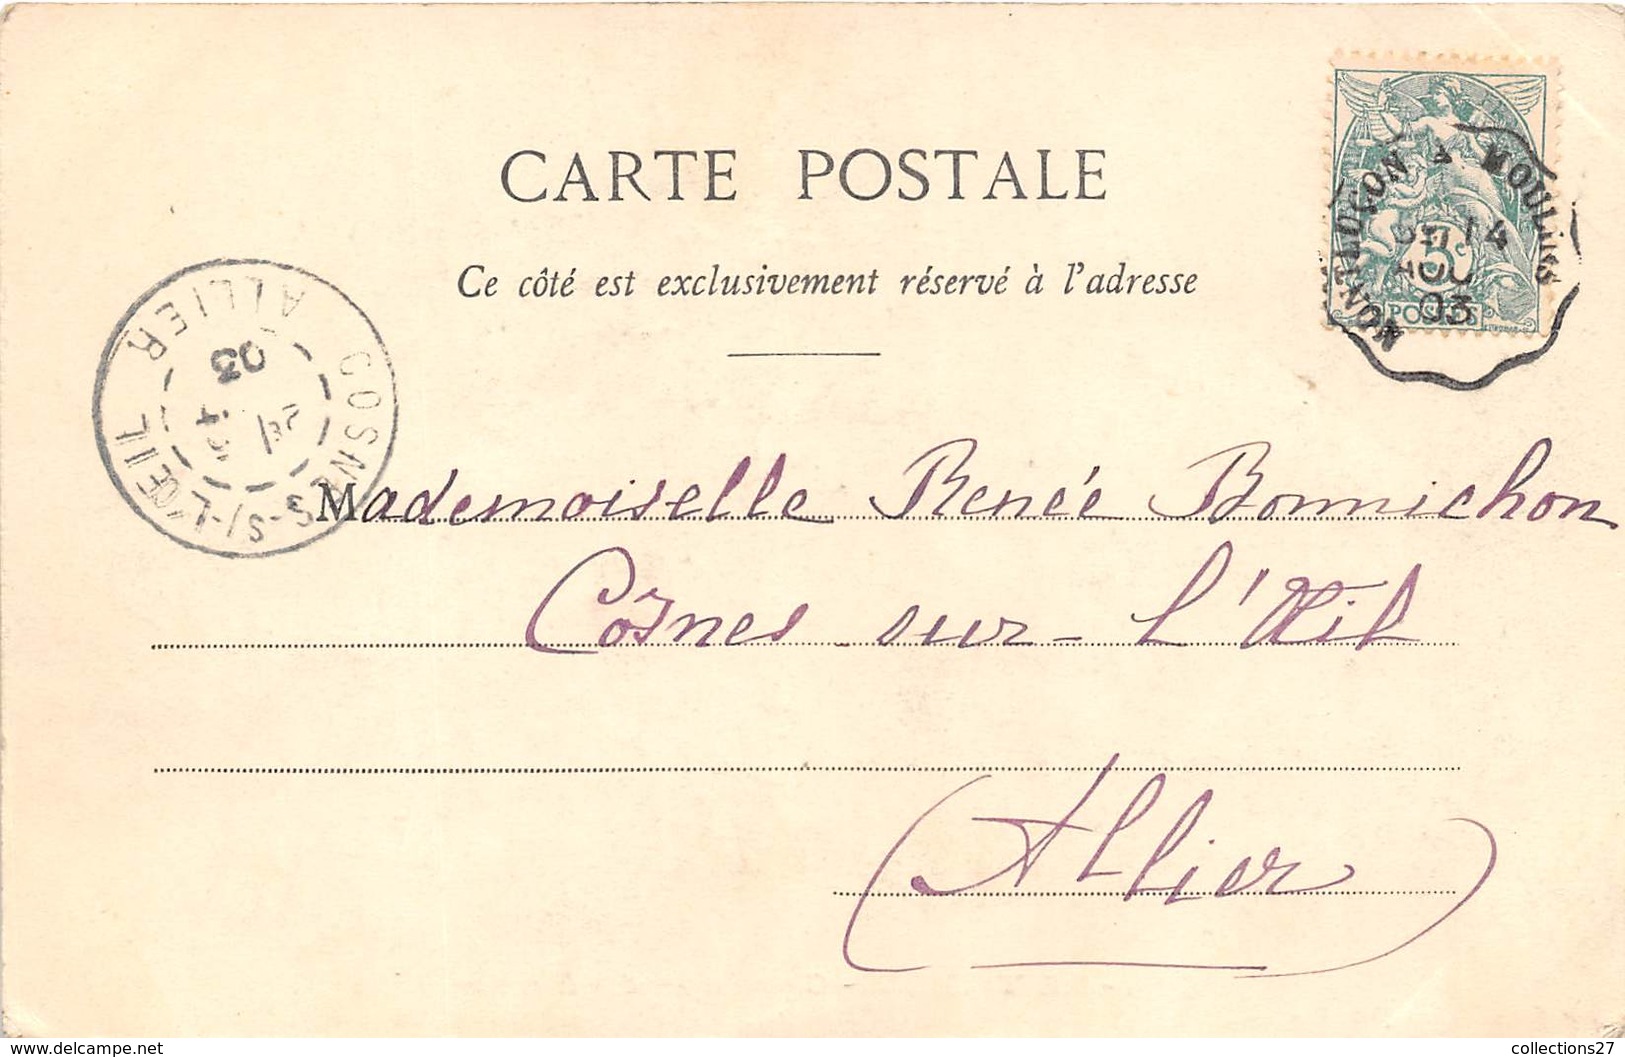 CARTE POSTALE
Ce côté est exclusivement réservé à l'adresse
MONTLUÇON A MOULINS
14
AOU
03
5c
POSTES
COSNES-S/-L'OEIL
ALLIER
03
Mademoiselle Renée Bonnichon
Cosnes sur-L'Œil
(Allier)
www.delcampe.net
collections27